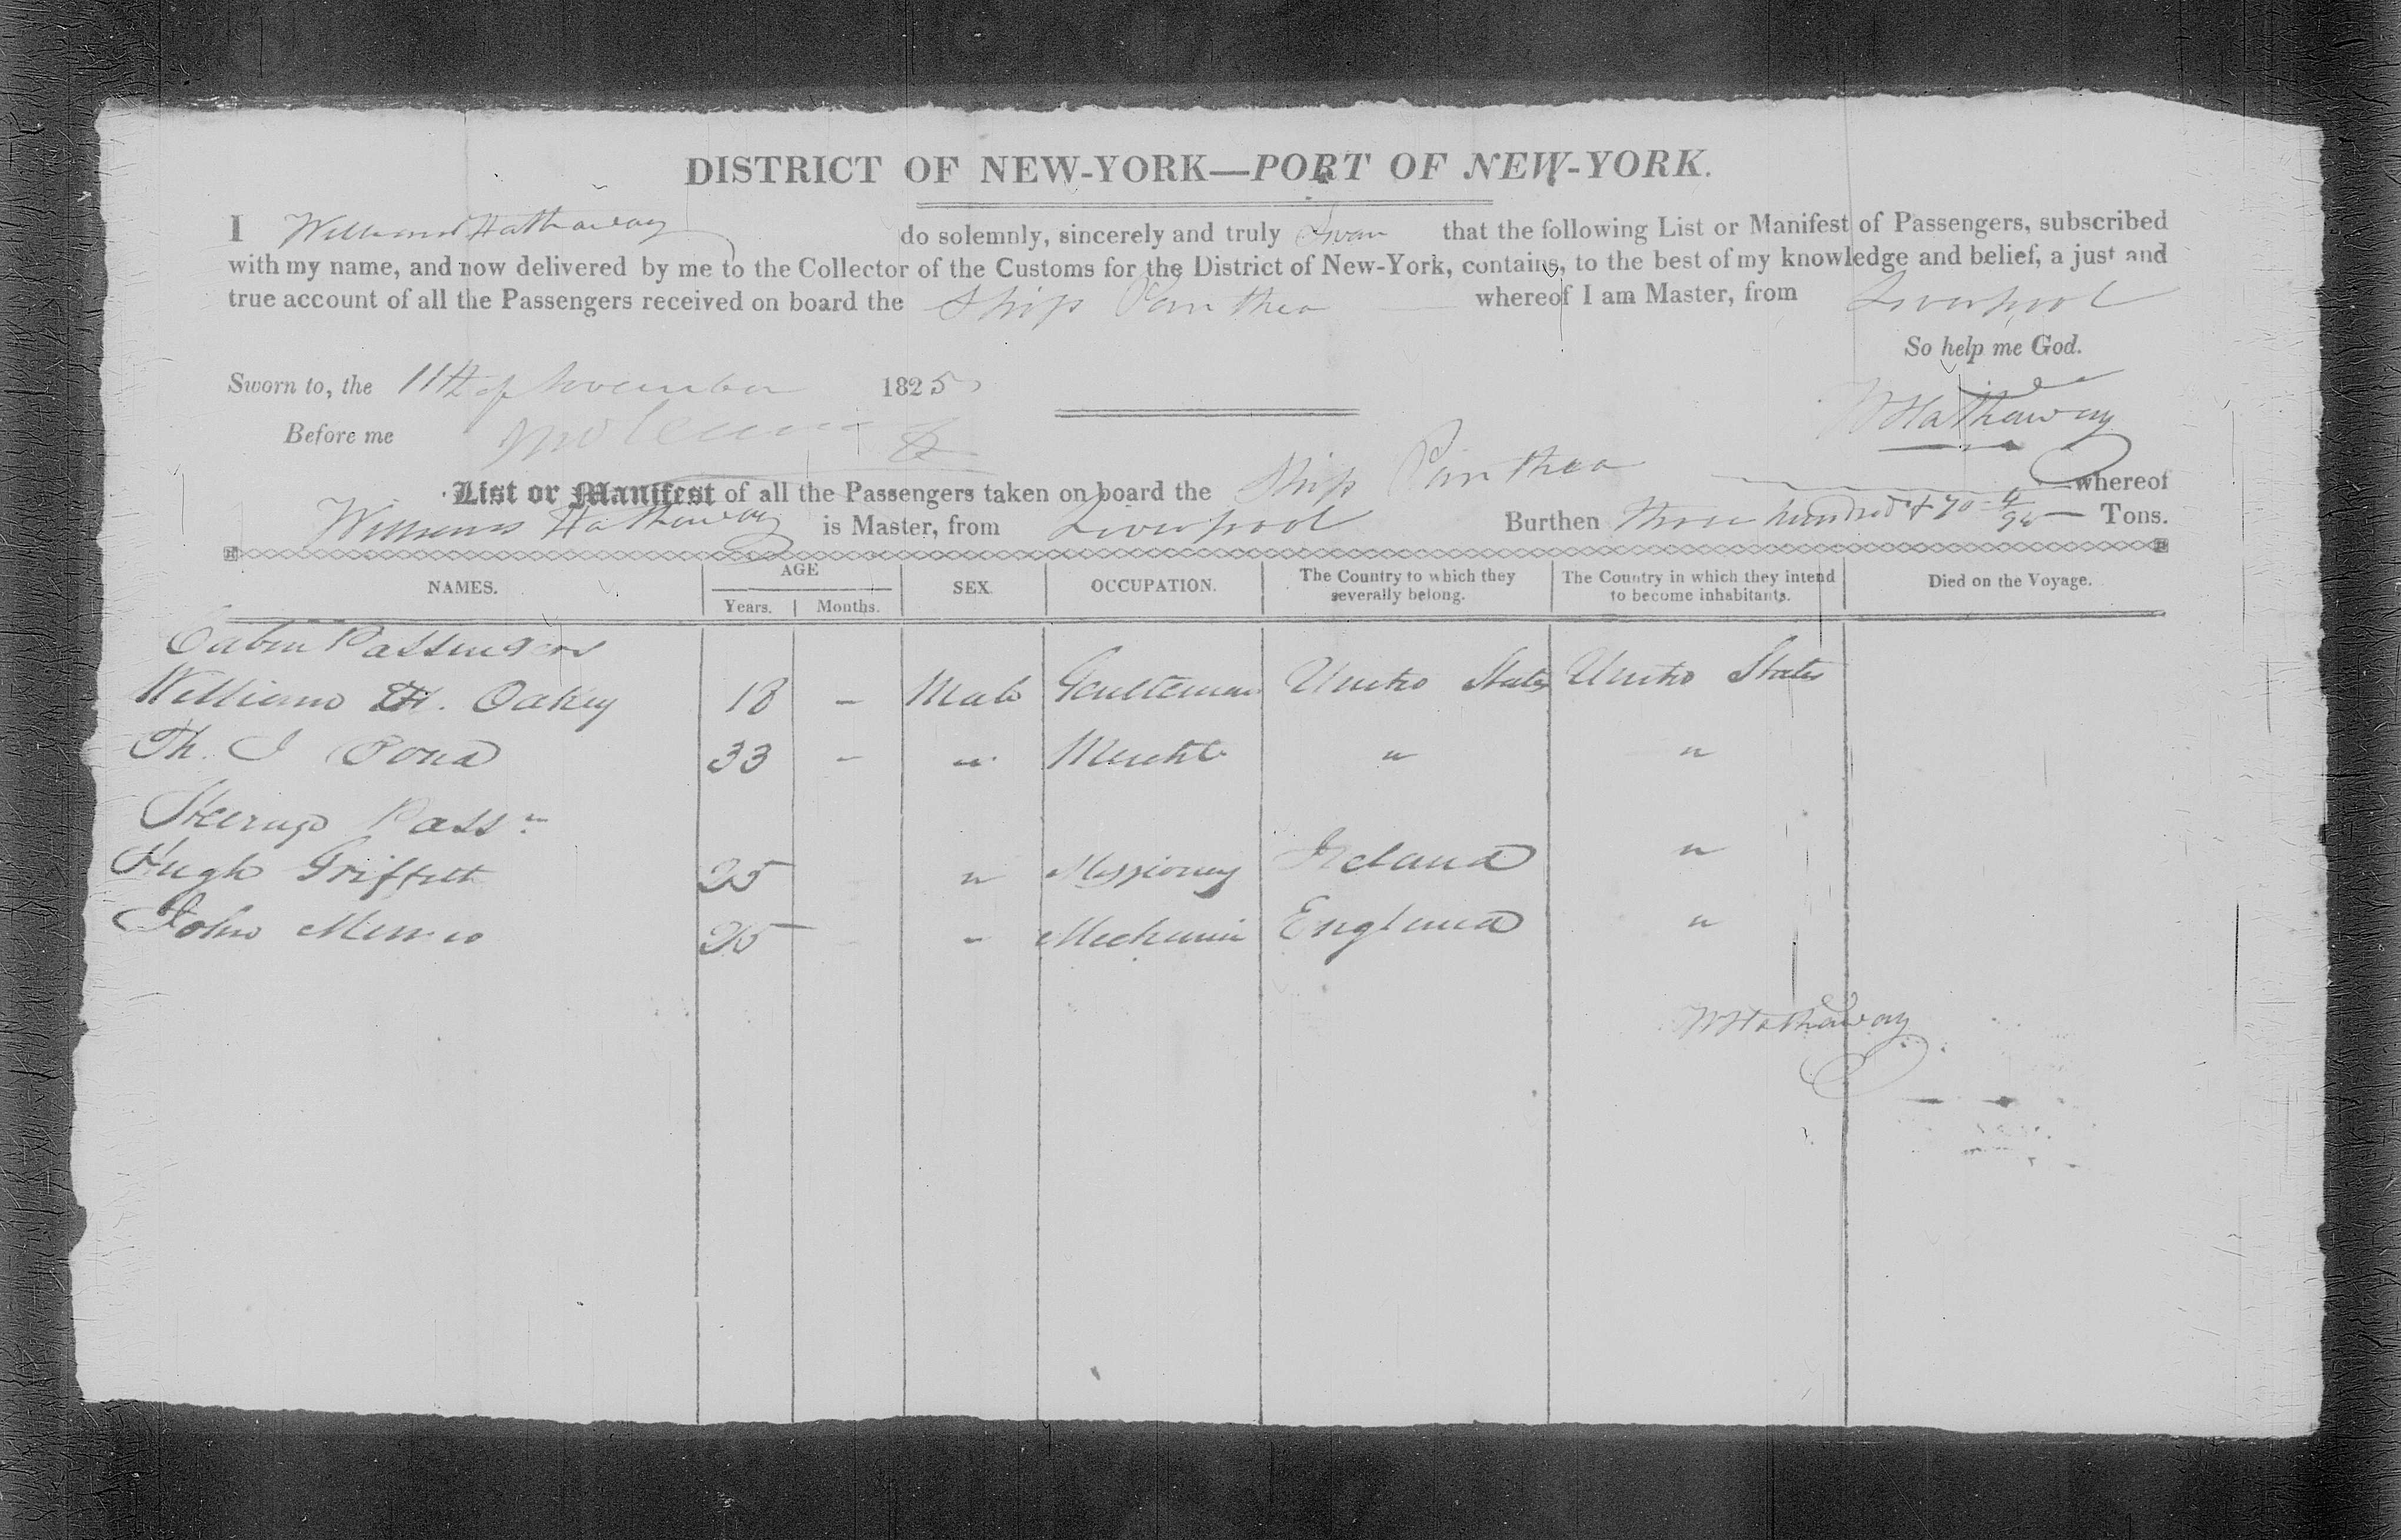 DISTRICT OF NEW-YORK—PORT OF NEW-YORK.
I William Hathaway do solemnly, sincerely and truly Swear that the following List or Manifest of Passengers, subscribed
with my name, and now delivered by me to the Collector of the Customs for the District of New-York, contains, to the best of my knowledge and belief, a just and
true account of all the Passengers received on board the Ship Panthea whereof I am Master, from Liverpool
So help me God.
Sworn to, the 11th of November 1825
W Hathaway
Before me
List or Manifest of all the Passengers taken on board the Ship Panthea whereof
William Hathaway is Master, from Liverpool Burthen three hundred & 70 Tons.
NAMES. AGE Years. Months. SEX. OCCUPATION. The Country to which they severally belong. The Country in which they intend to become inhabitants. Died on the Voyage.
Cabin Passengers
William H. Oakey 18 - Male Gentleman United States United States
Th. J Pond 33 - " Mercht " "
Steerage Passrs
Hugh Griffeth 25 " Ireland "
John 25 " Mechanic England "
W Hathaway